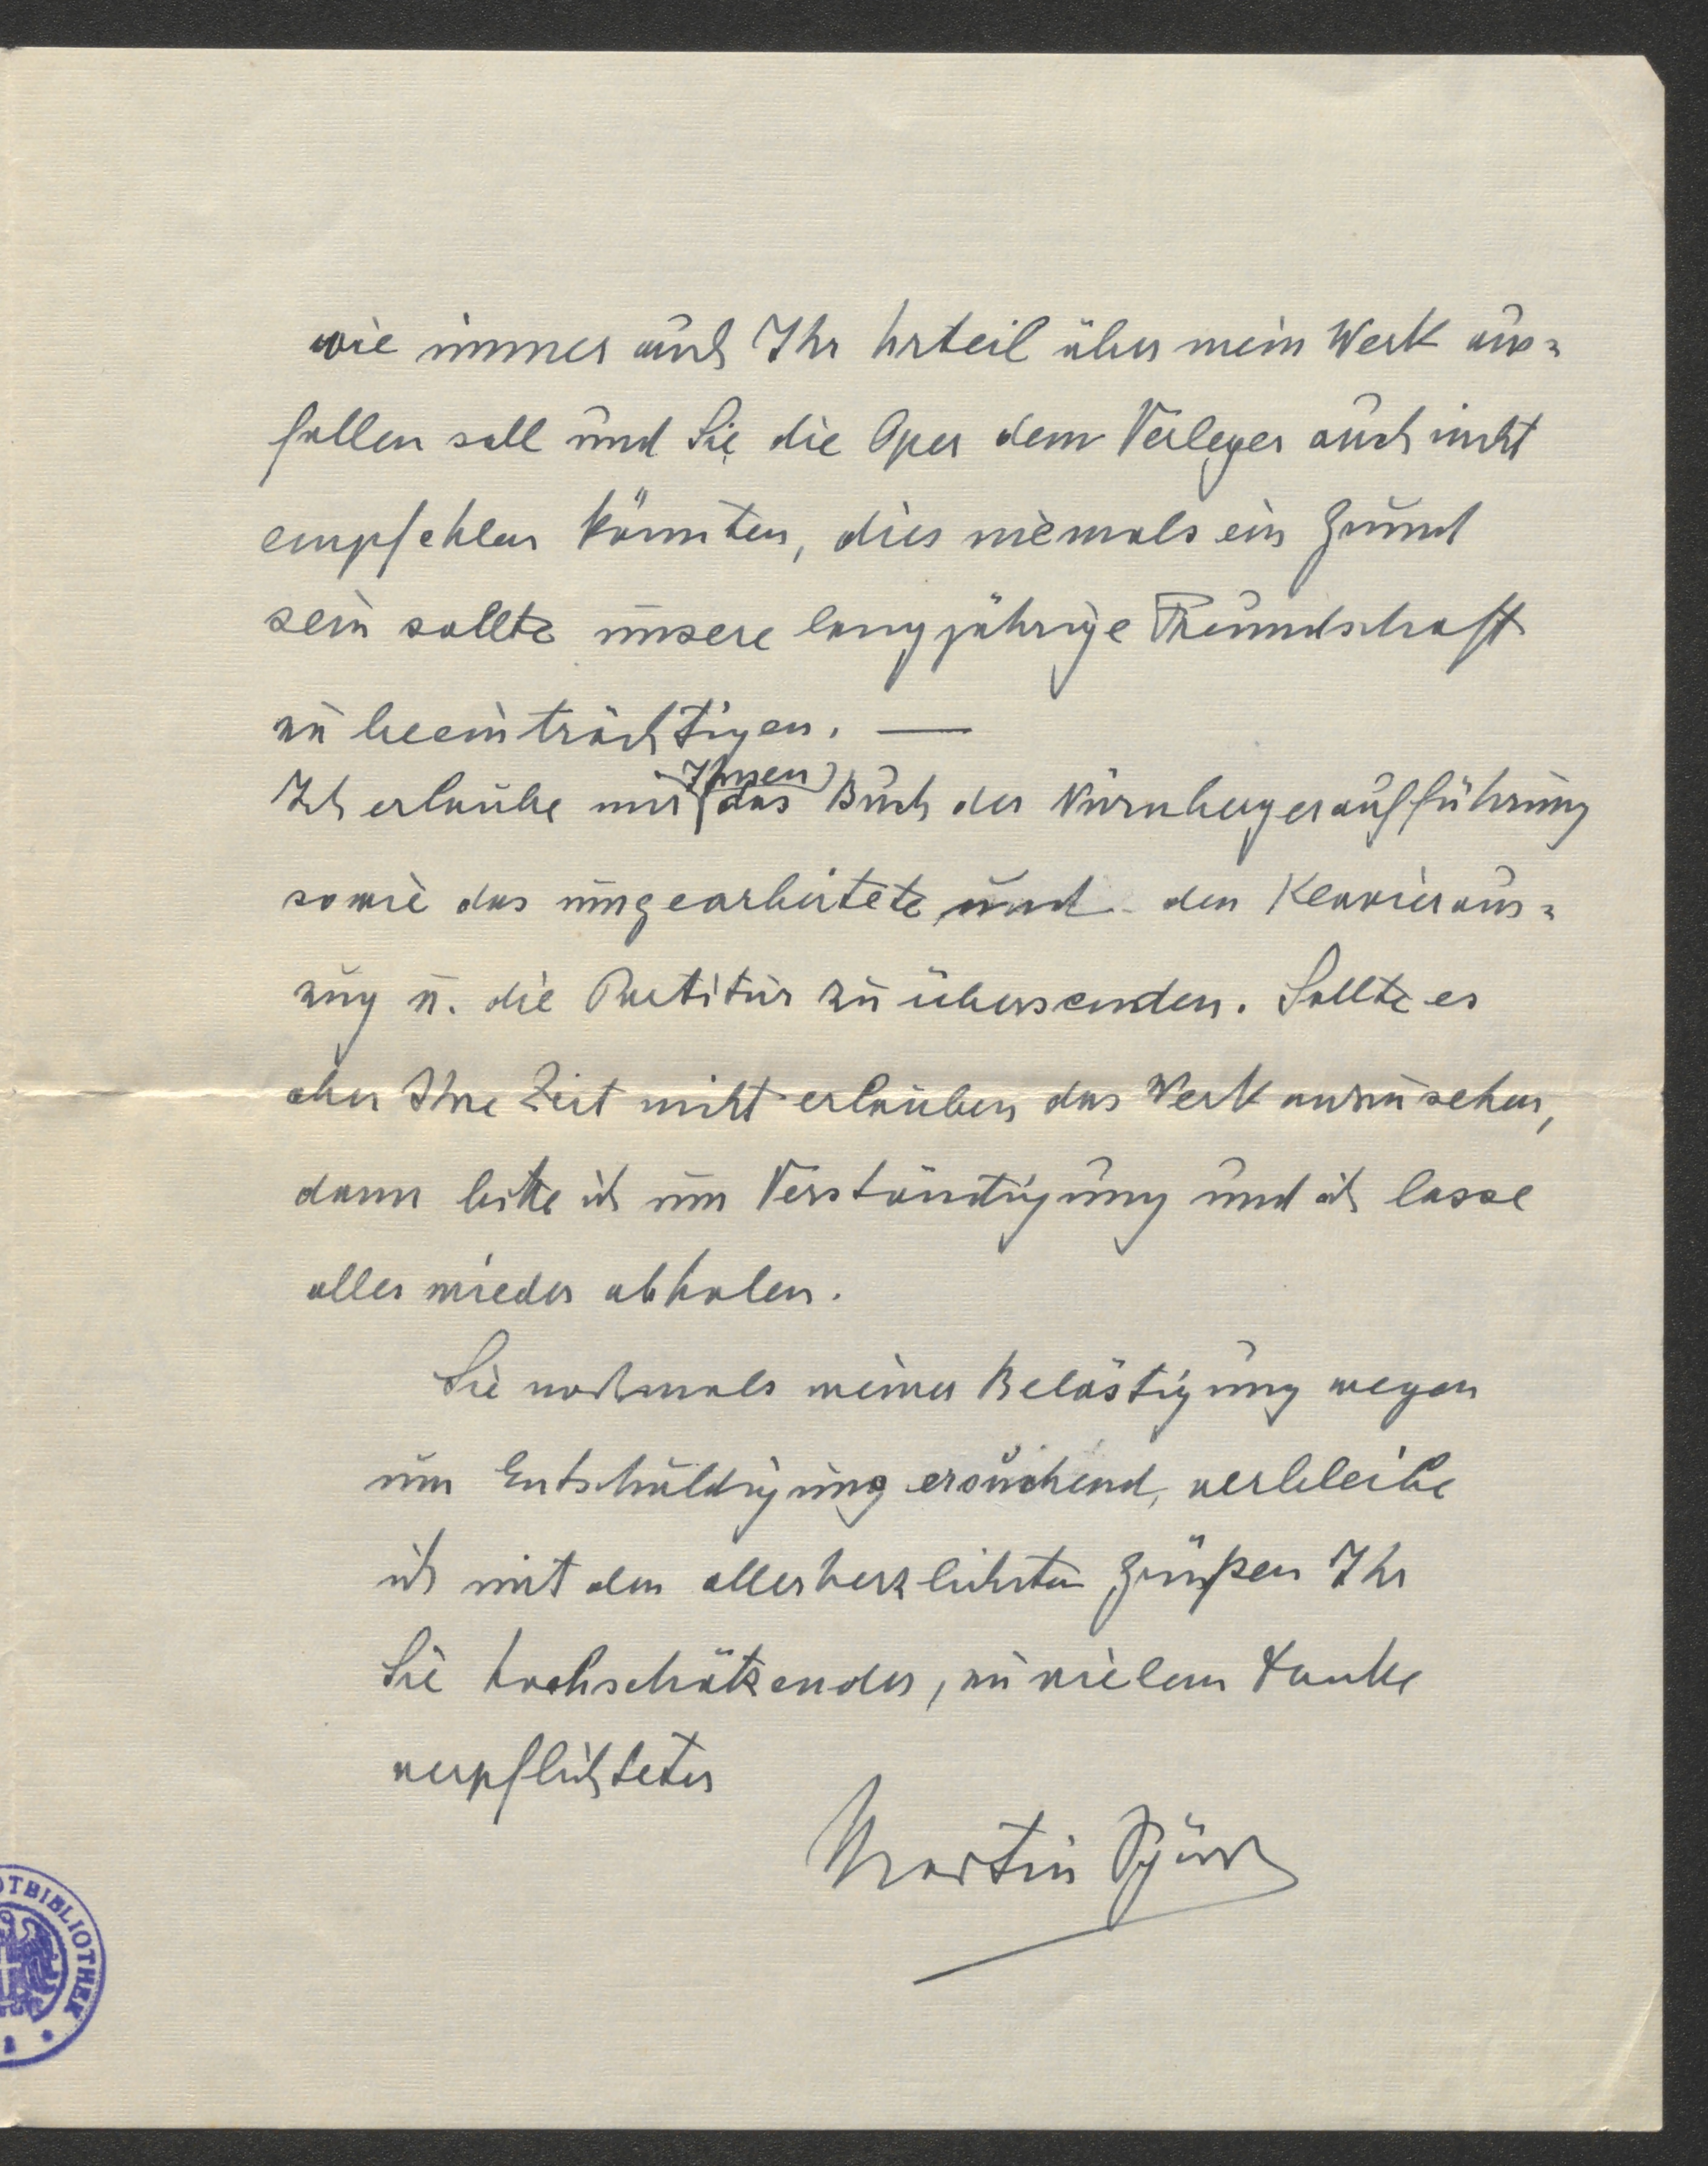 wie immer auch Ihr Urteil über mein Werk aus=
fallen soll und Sie die Oper dem Verleger auch nicht
empfehlen könnten, dies niemals ein Grund
sein sollte unsere langjährige Freundschaft
zu beeinträchtigen. —
Ihnen
Ich erlaube mir das Buch der Nürnbergeraufführung
sowie das umgearbeitete und den Klavieraus=
zug u. die Partitur zu übersenden. Sollte es
aber Ihre Zeit nicht erlauben das Werk anzusehen,
dann bitte ich um Verständigung und ich lasse
alles wieder abholen.
Sie nochmals meiner Belästigung wegen
um Entschuldigung ersuchend, verbleibe
ich mit den allerherzlichsten Grüßen Ihr
Sie hochschätzender, zu vielem Danke
verpflichteter
Martin Spörr
OTBIBLIOTHEK